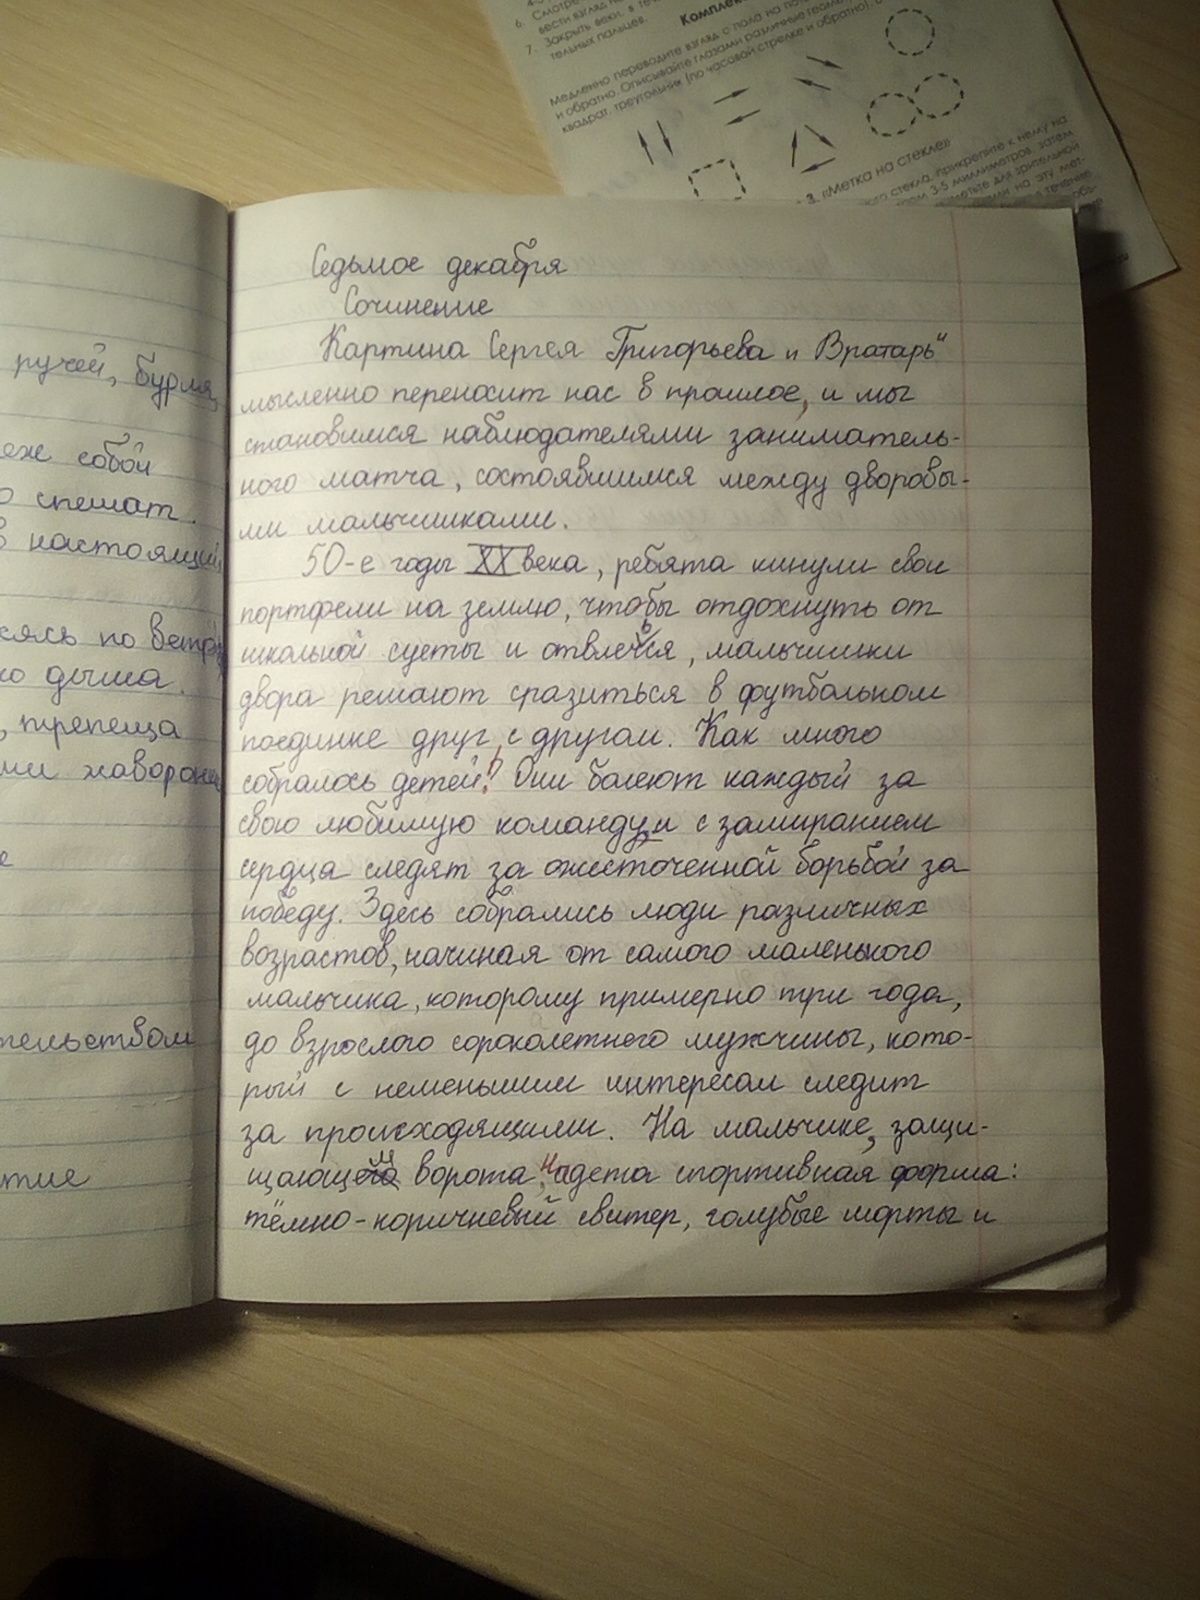 6. Смотре
вести взгляд
7. Закрыть веки, в те
тельных пальцев.
Комплек
Медленно переводите взгляд с пола на пот
и обратно. Описывайте глазами различные геоме
квадрат, треугольник (по часовой стрелке и обратно).
3. «Метка на стекле»
ого стекла, прикрепите к нему на
ром 3-5 миллиметров, затем
метьте для зрительной
на эту мет-
в течение
ручей, бурля,
еж собой
о спешат.
в настоящий
ясь по ветру
ко дыша.
, трепеща
ми жаворонка
е
тельством
тие
Седьмое декабря
Сочинение
Картина Сергея Григорьева „Вратарь"
мысленно переносит нас в прошлое, и мы
становимся наблюдателями заниматель-
ного матча, состоявшимся между дворовы-
ми мальчишками.
50-е годы XX века, ребята кинули свои
портфели на землю, чтобы отдохнуть от
школьной суеты и отвлечься, мальчишки
двора решают сразиться в футбольном
поединке друг с другом. Как много
собралось детей! Они болеют каждый за
свою любимую команду, и с замиранием
сердца следят за ожесточенной борьбой за
победу. Здесь собрались люди различных
возрастов, начиная от самого маленького
мальчика, которому примерно три года,
до взрослого сороколетнего мужчины, кото-
рый с неменьшим интересом следит
за происходящими. На мальчике, защи-
щающем ворота, надета спортивная форма:
тёмно-коричневый свитер, голубые шорты и